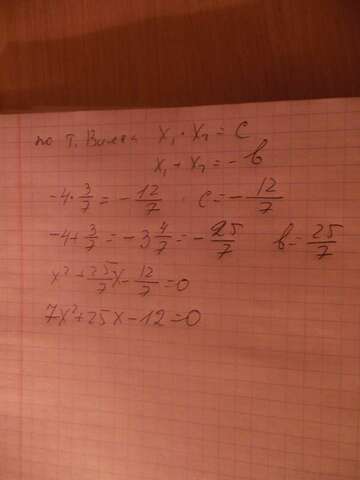 по т. Виета x₁ · x₂ = c
x₁ + x₂ = -b
-4 · 3/7 = - 12/7 c = - 12/7
-4 + 3/7 = -3 4/7 = - 25/7 b = 25/7
x² + 25/7 x - 12/7 = 0
7x² + 25x - 12 = 0